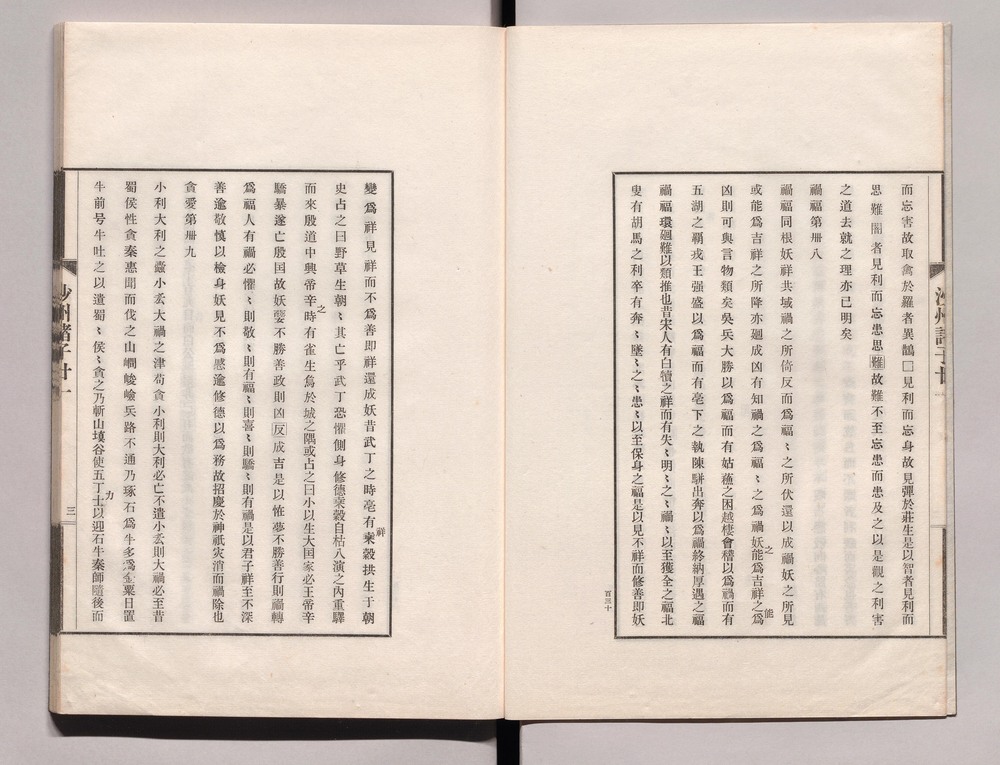 而忘害故取禽於羅者異鵲□見利而忘身故見彈於莊生是以智者見利而
思難闇者見利而忘患思難故難不至忘患而患及之以是觀之利害
之道去就之理亦已明矣
禍福第卌八
禍福同根妖祥共域禍之所倚反而為福〻之所伏還以成禍妖之所見
或能為吉祥之所降亦廻成凶有知禍之為福〻之為禍妖能為吉祥之為
之
能
凶則可與言物類矣吳兵大勝以為福而有姑蘓之困越棲會稽以為禍而有
五湖之覇戎王强盛以為福而有亳下之執陳駢出奔以為禍終納厚遇之福
禍福環廻難以類推也昔宋人有白犢之祥而有失〻明〻之〻禍〻以至獲全之福北
叟有胡馬之利卒有奔〻墜〻之〻患〻以至保身之福是以見不祥而修善即妖
百三十
沙州諸子廿
變為祥見祥而不為善即祥還成妖昔武丁之時亳有桒榖拱生于朝
祥
史占之曰野草生朝〻其亡乎武丁恐懼側身修德桒榖自枯八演之內重驛
而來殷道中興帝辛時有雀生鳥於城之隅或占之曰小以生大国家必王帝辛
之
驕暴遂亡殷国故妖孽不勝善政則凶反成吉是以恠夢不勝善行則禍轉
為福人有禍必懼〻則敬〻則有福〻則喜〻則驕〻則有禍是以君子祥至不深
善逾敬慎以檢身妖見不為慼逾修德以為務故招慶於神祇灾消而禍除也
貪愛第卌九
小利大利之蠹小𠫤大禍之津苟貪小利則大利必亡不遣小𠫤則大禍必至昔
蜀侯性貪秦惠聞而伐之山㵎峻嶮兵路不通乃琢石為牛多為金粟日置
牛前号牛吐之以遺蜀〻侯〻貪之乃斬山塡谷使五丁士以迎石牛秦師隨後而
力
沙州諸子廿
三